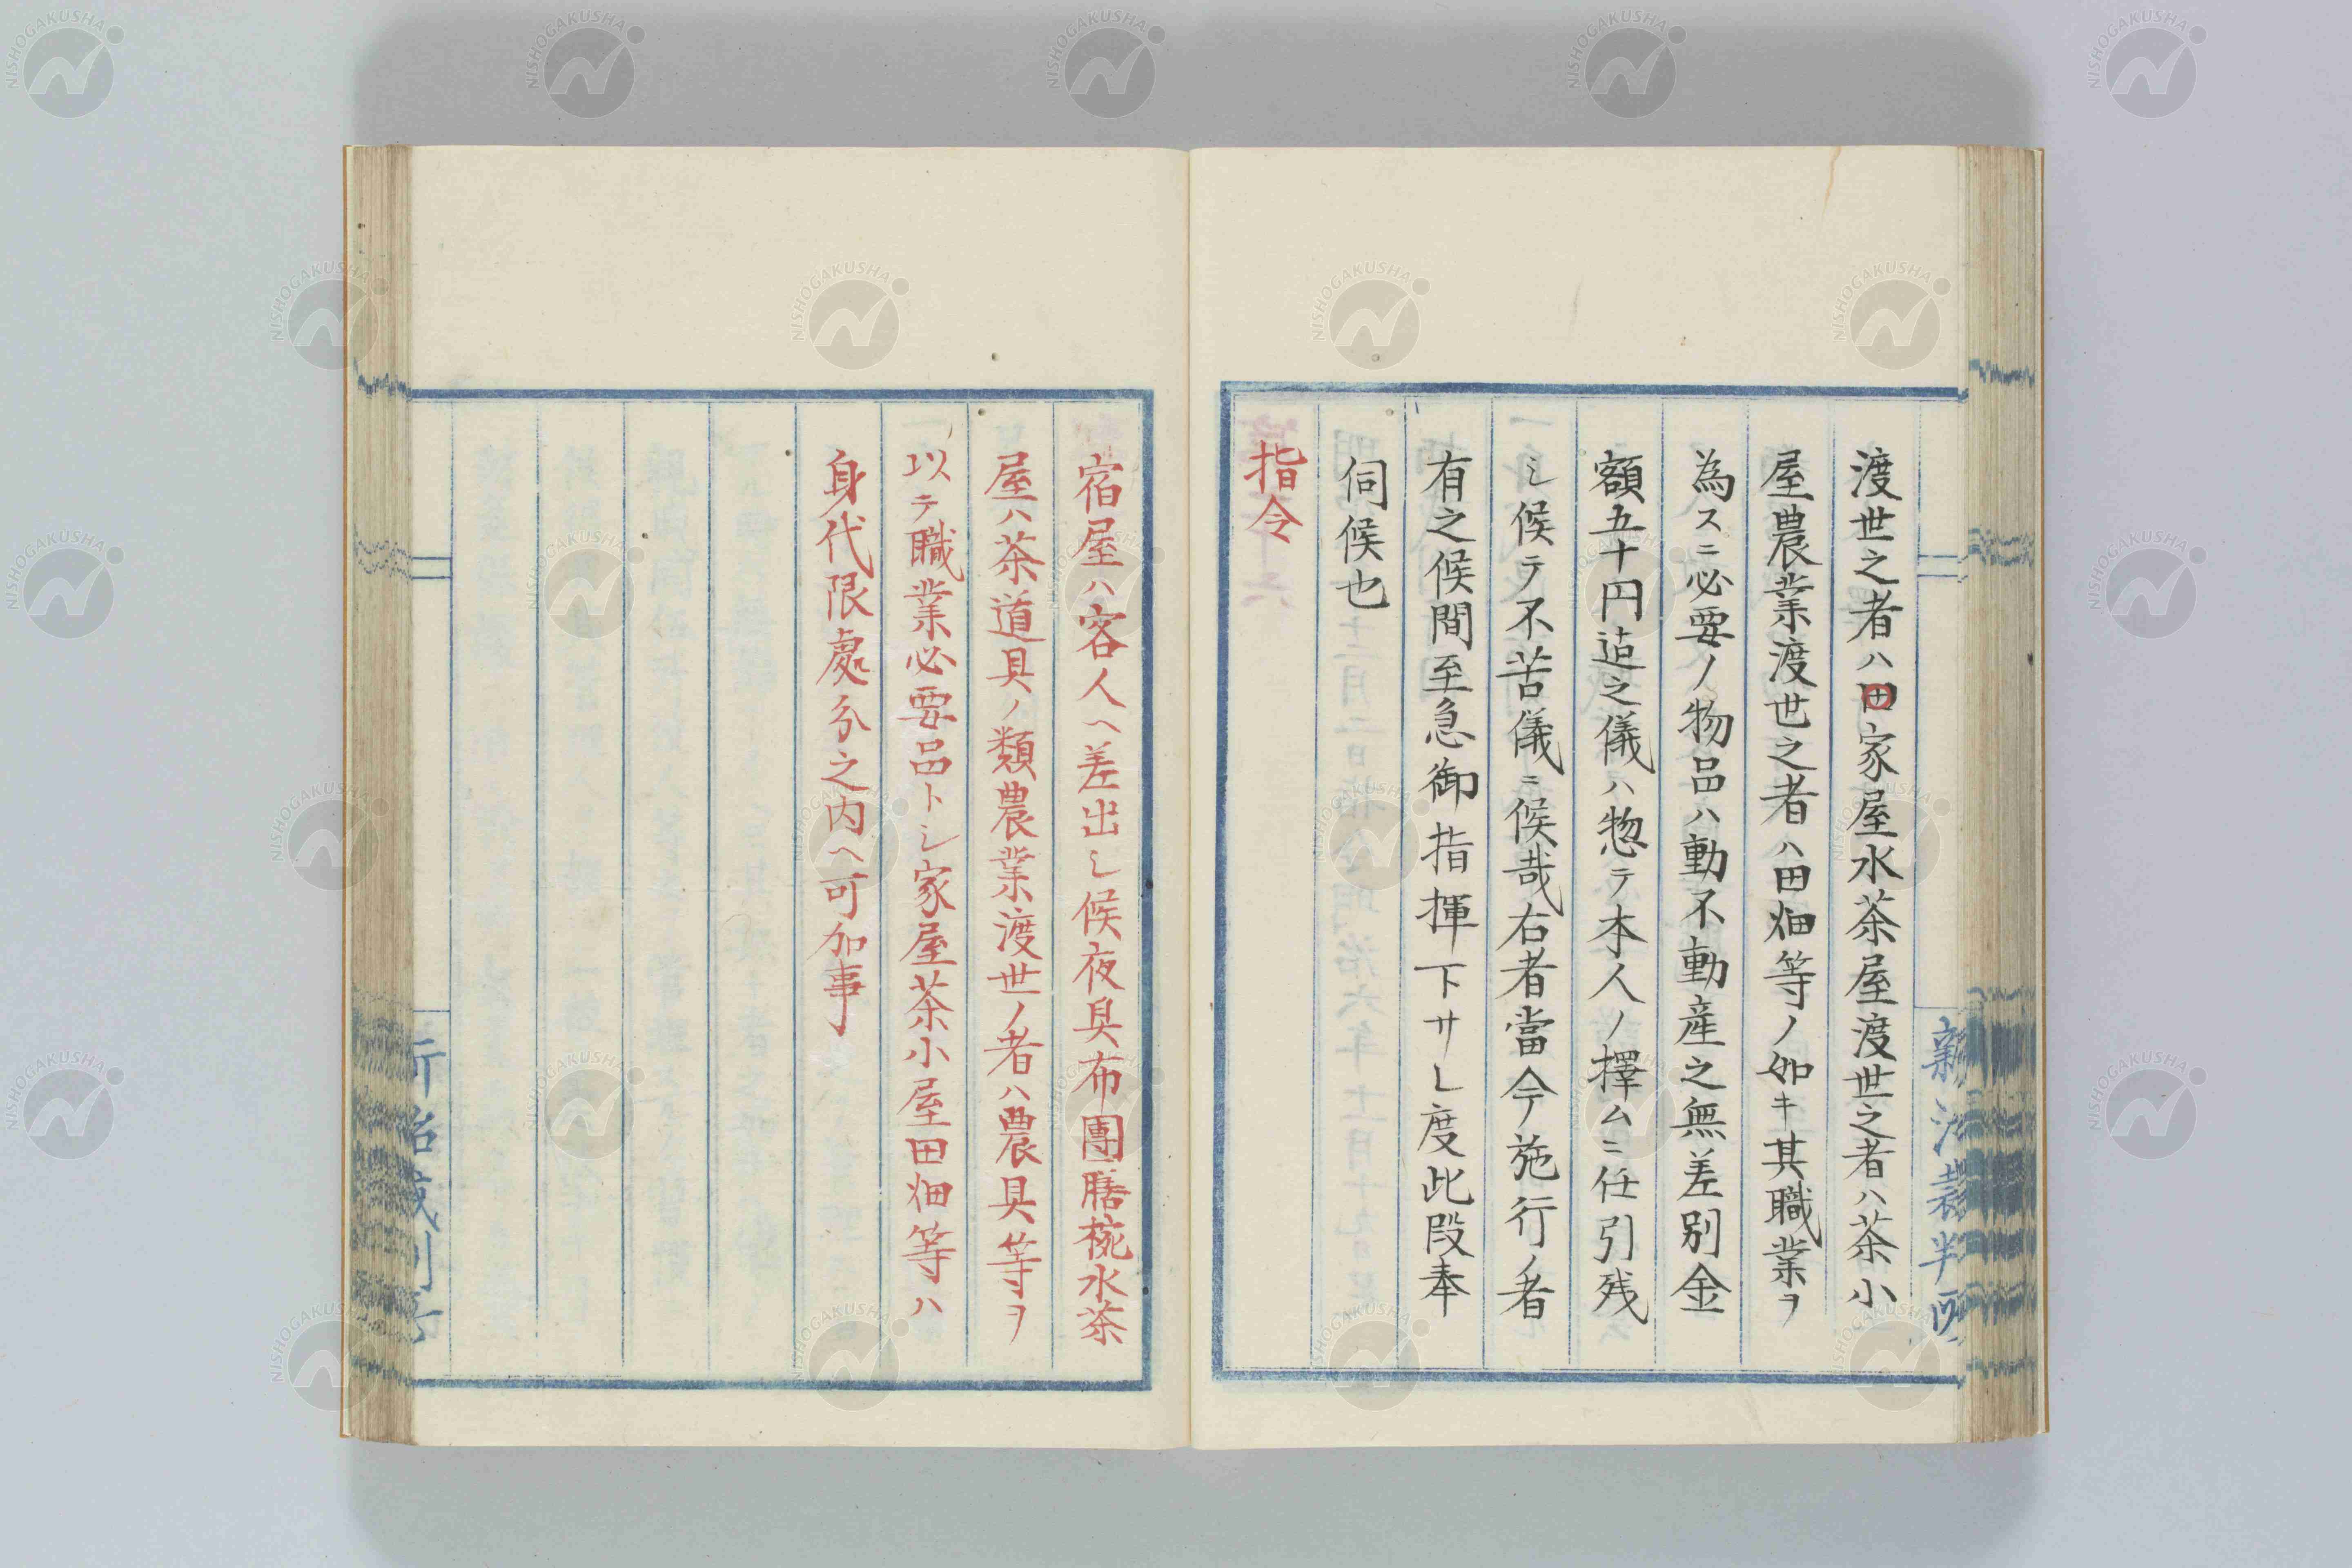 渡世之者ハ田家屋水茶屋渡世之者ハ茶小
屋農業渡世之者ハ田畑等ノ如キ其職業ヲ
為スニ必要ノ物品ハ動不動産之無差別金
額五十円迠之儀ハ惣テ本人ノ擇ムニ任引残
シ候テ不苦儀ニ候哉右者當今施行ノ者
有之候間至急御指揮下サレ度此段奉
伺候也
指令
宿屋ハ客人ヘ差出シ候夜具布團膳椀水茶
屋ハ茶道具ノ類農業渡世ノ者ハ農具等ヲ
以テ職業必要品トシ家屋茶小屋田畑等ハ
身代限處分之内ヘ可加事
NISHOGAKUSHA